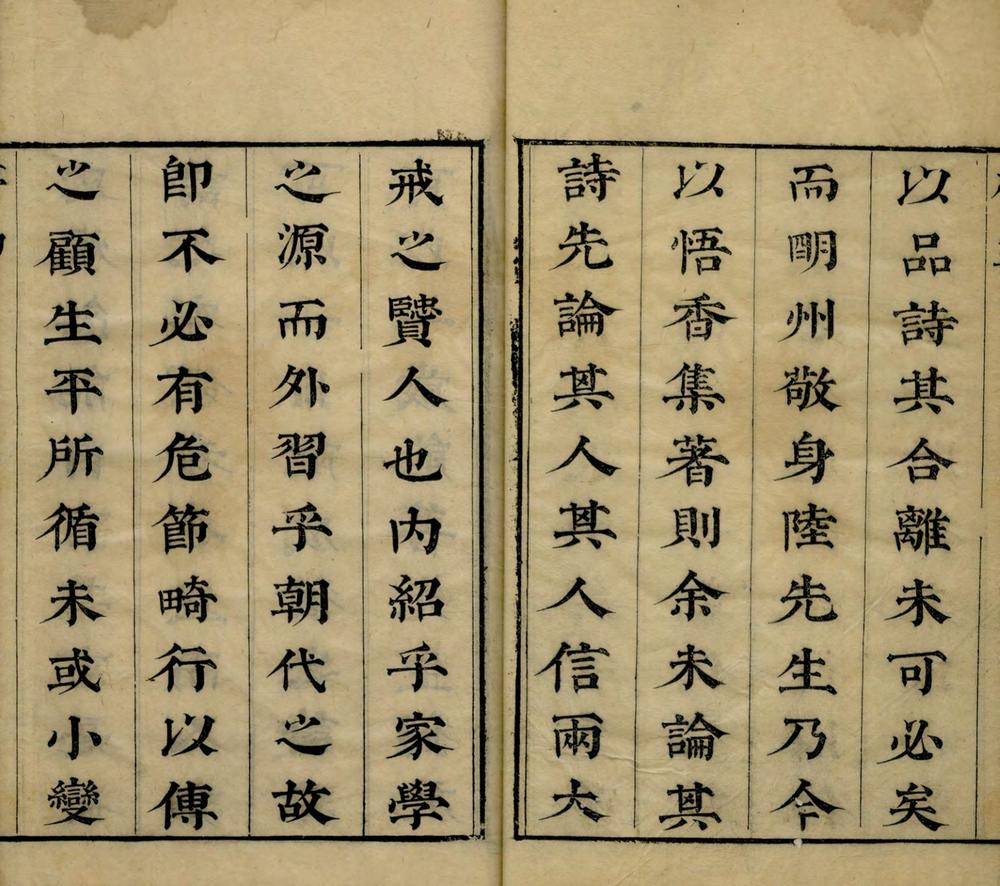 以品詩其合離未可必矣
而明州敬身陸先生乃今
以悟香集著則余未論其
詩先論其人其人信兩大
戒之賢人也內紹乎家學
之源而外習乎朝代之故
卽不必有危節畸行以傳
之顧生平所循未或小變